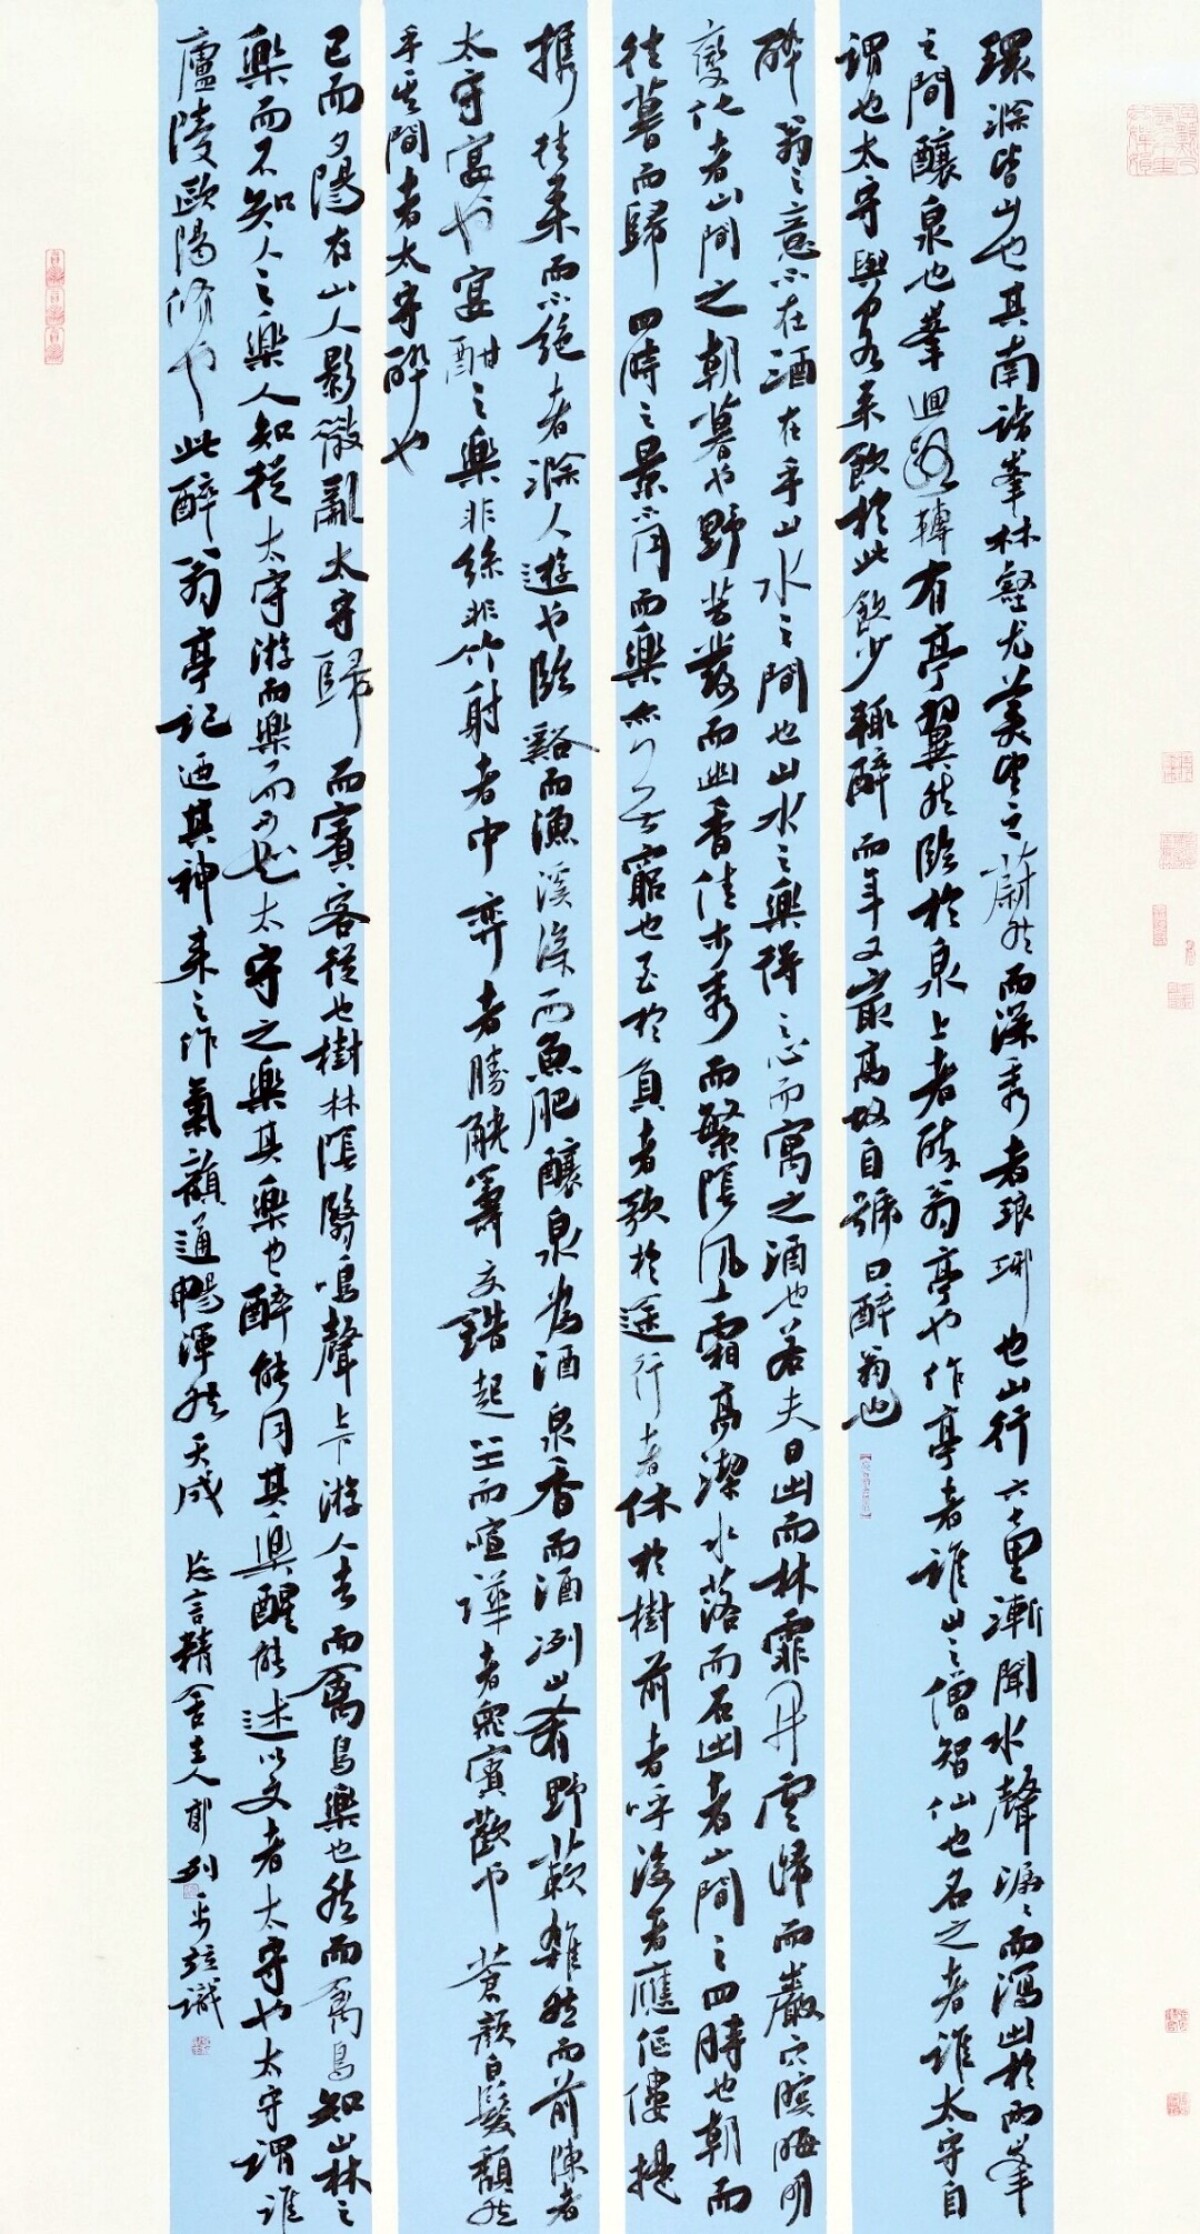 環滁皆山也其南諸峯林壑尤美望之蔚然而深秀者琅琊也山行六七里漸聞水聲潺々而瀉出於兩峯
之間釀泉也峯迴路轉有亭翼然臨於泉上者醉翁亭也作亭者誰山之僧智仙也名之者誰太守自
謂也太守與客來飲於此飲少輒醉而年又最高故自號曰醉翁也
醉翁之意不在酒在乎山水之間也山水之樂得之心而寓之酒也若夫日出而林霏開雲歸而巖穴暝晦明
變化者山間之朝暮也野芳發而幽香佳木秀而繁陰風霜高潔水落而石出者山間之四時也朝而
往暮而歸四時之景不同而樂亦無窮也至於負者歌於途行者休於樹前者呼後者應傴僂提
攜往來而不絕者滁人遊也臨谿而漁溪深而魚肥釀泉為酒泉香而酒洌山肴野蔌雜然而前陳者
太守宴也宴酣之樂非絲非竹射者中弈者勝觥籌交錯起坐而喧譁者衆賓歡也蒼顏白髮頹然
乎其間者太守醉也
已而夕陽在山人影散亂太守歸而賓客從也樹林陰翳鳴聲上下游人去而禽鳥樂也然而禽鳥知山林之
樂而不知人之樂人知從太守游而樂而不知太守之樂其樂也醉能同其樂醒能述以文者太守也太守謂誰
廬陵歐陽修也此醉翁亭記迺其神來之作氣韻通暢渾然天成 忘言精舍主人郭列平並識